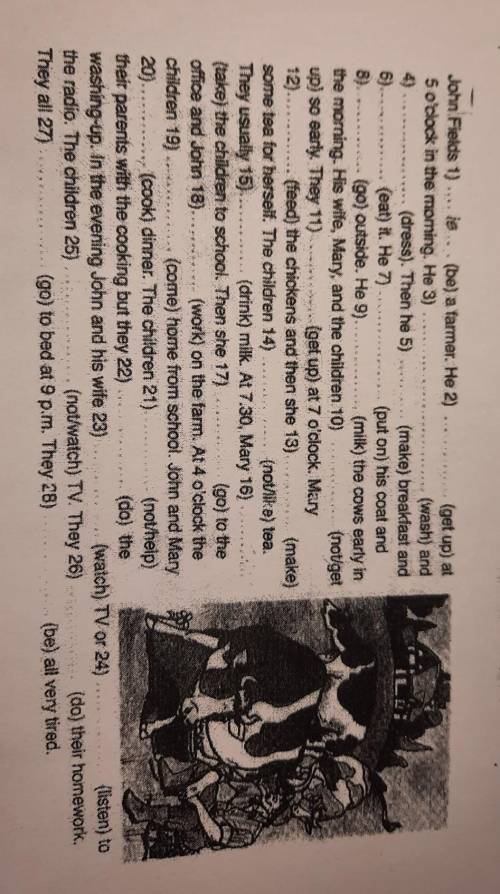 John Fields 1) .... is .... (be) a farmer. He 2) ............. (get up) at
5 o'clock in the morning. He 3) ............. (wash) and
4) ............. (dress). Then he 5) ............. (make) breakfast and
6) ............. (eat) it. He 7) ............. (put on) his coat and
8) ............. (go) outside. He 9) ............. (milk) the cows early in
the morning. His wife, Mary, and the children 10) ............. (not/get
up) so early. They 11) ............. (get up) at 7 o'clock. Mary
12) ............. (feed) the chickens and then she 13) ............. (make)
some tea for herself. The children 14) ............. (not/like) tea.
They usually 15) ............. (drink) milk. At 7.30, Mary 16) .............
(take) the children to school. Then she 17) ............. (go) to the
office and John 18) ............. (work) on the farm. At 4 o'clock the
children 19) ............. (come) home from school. John and Mary
20) ............. (cook) dinner. The children 21) ............. (not/help)
their parents with the cooking but they 22) ............. (do) the
washing-up. In the evening John and his wife 23) ............. (watch) TV or 24) ............. (listen) to
the radio. The children 25) ............. (not/watch) TV. They 26) ............. (do) their homework.
They all 27) ............. (go) to bed at 9 p.m. They 28) ............. (be) all very tired.